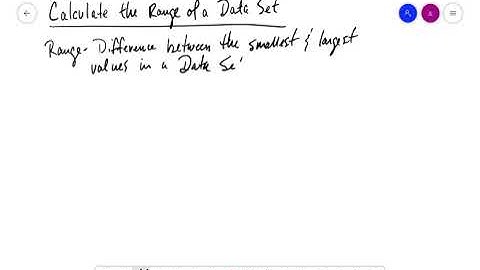 Calculate the Range of a Data Set
Range- Difference between the smallest & largest
values in a Data Se'